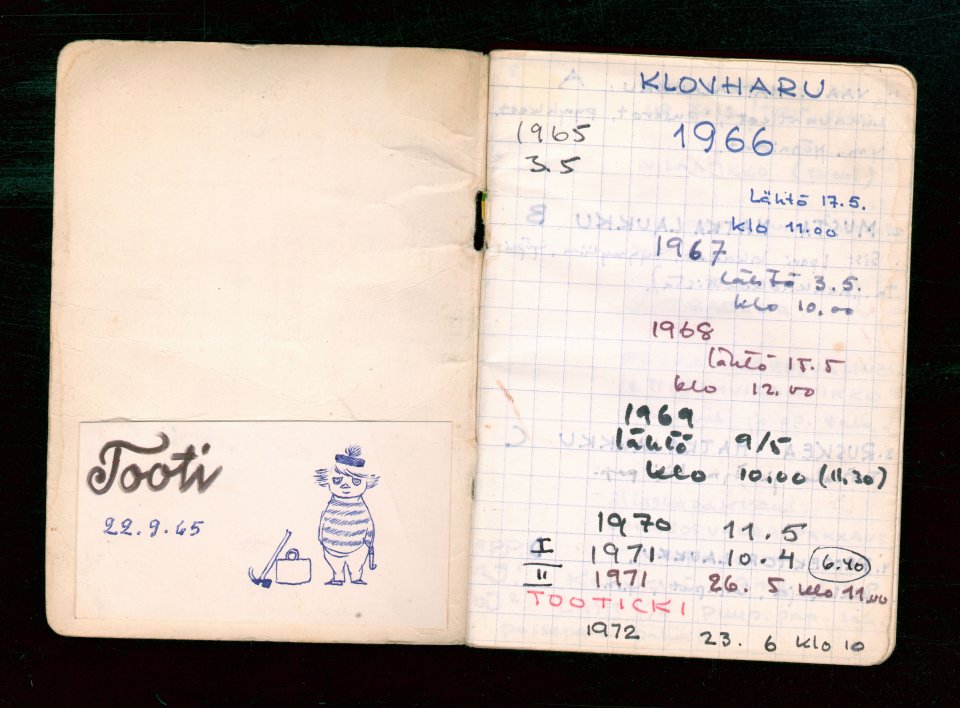 Tooti
22.9.65
KLOVHARU
1965
1966
3.5
Lähtö 17.5.
klo 11.00
1967
Lähtö 3.5.
klo 10.00
1968
lähtö 15.5
klo 12.00
1969
lähtö 9/5
klo 10.00 (11.30)
1970 11.5
I 1971 10.4 6.40
II 1971 26.5 klo 11.00
TOOTICKI
1972 23. 6 klo 10
A
MUSTA MATKALAUKKU B
C